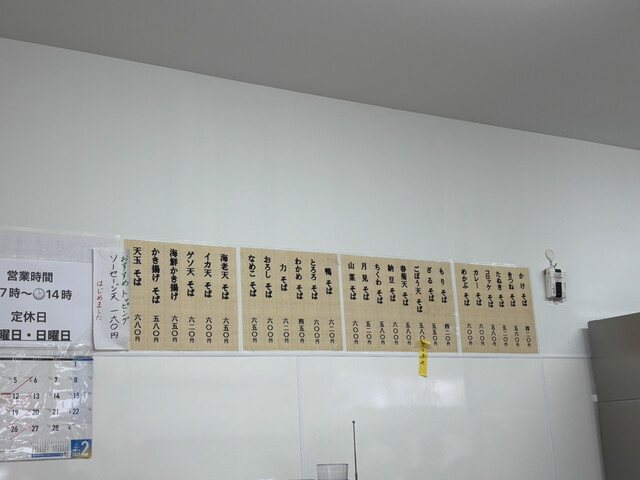 かけ そば 四二〇円
きつね そば 五五〇円
たぬき そば 五二〇円
コロッケ そば 六〇〇円
カレー そば 六〇〇円
めかぶ そば 六〇〇円
もり そば 四二〇円
ざる そば 五五〇円
ごぼう天 そば 五八〇円
春菊天 そば 六〇〇円
納豆 そば 五八〇円
ちくわ そば 五八〇円
月見 そば 五二〇円
山菜 そば 六〇〇円
鴨 そば 六二〇円
とろろ そば 六〇〇円
わかめ そば 四五〇円
力 そば 六二〇円
おろし そば 六〇〇円
なめこ そば 六五〇円
海老天 そば 六五〇円
イカ天 そば 六〇〇円
ゲソ天 そば 六二〇円
海鮮かき揚げ 六五〇円
かき揚げ そば 五八〇円
天玉 そば 六八〇円
おすすめトッピング
ソーセージ天 一六〇円
はじめました
営業時間
7時〜14時
定休日
曜日・日曜日
1
5 6 7 8
12 13 14 15
19 20 21 22
26 27 28
2